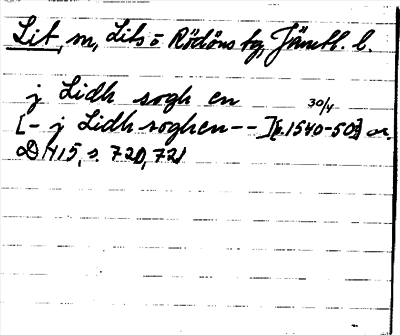 Lit, m, Lits o Rödöns tg, Jämtl. l.
j Lidh sogh en
30/4
[- j Lidh soghen--][b.1540-50?] or.
DN15, s. 720, 721